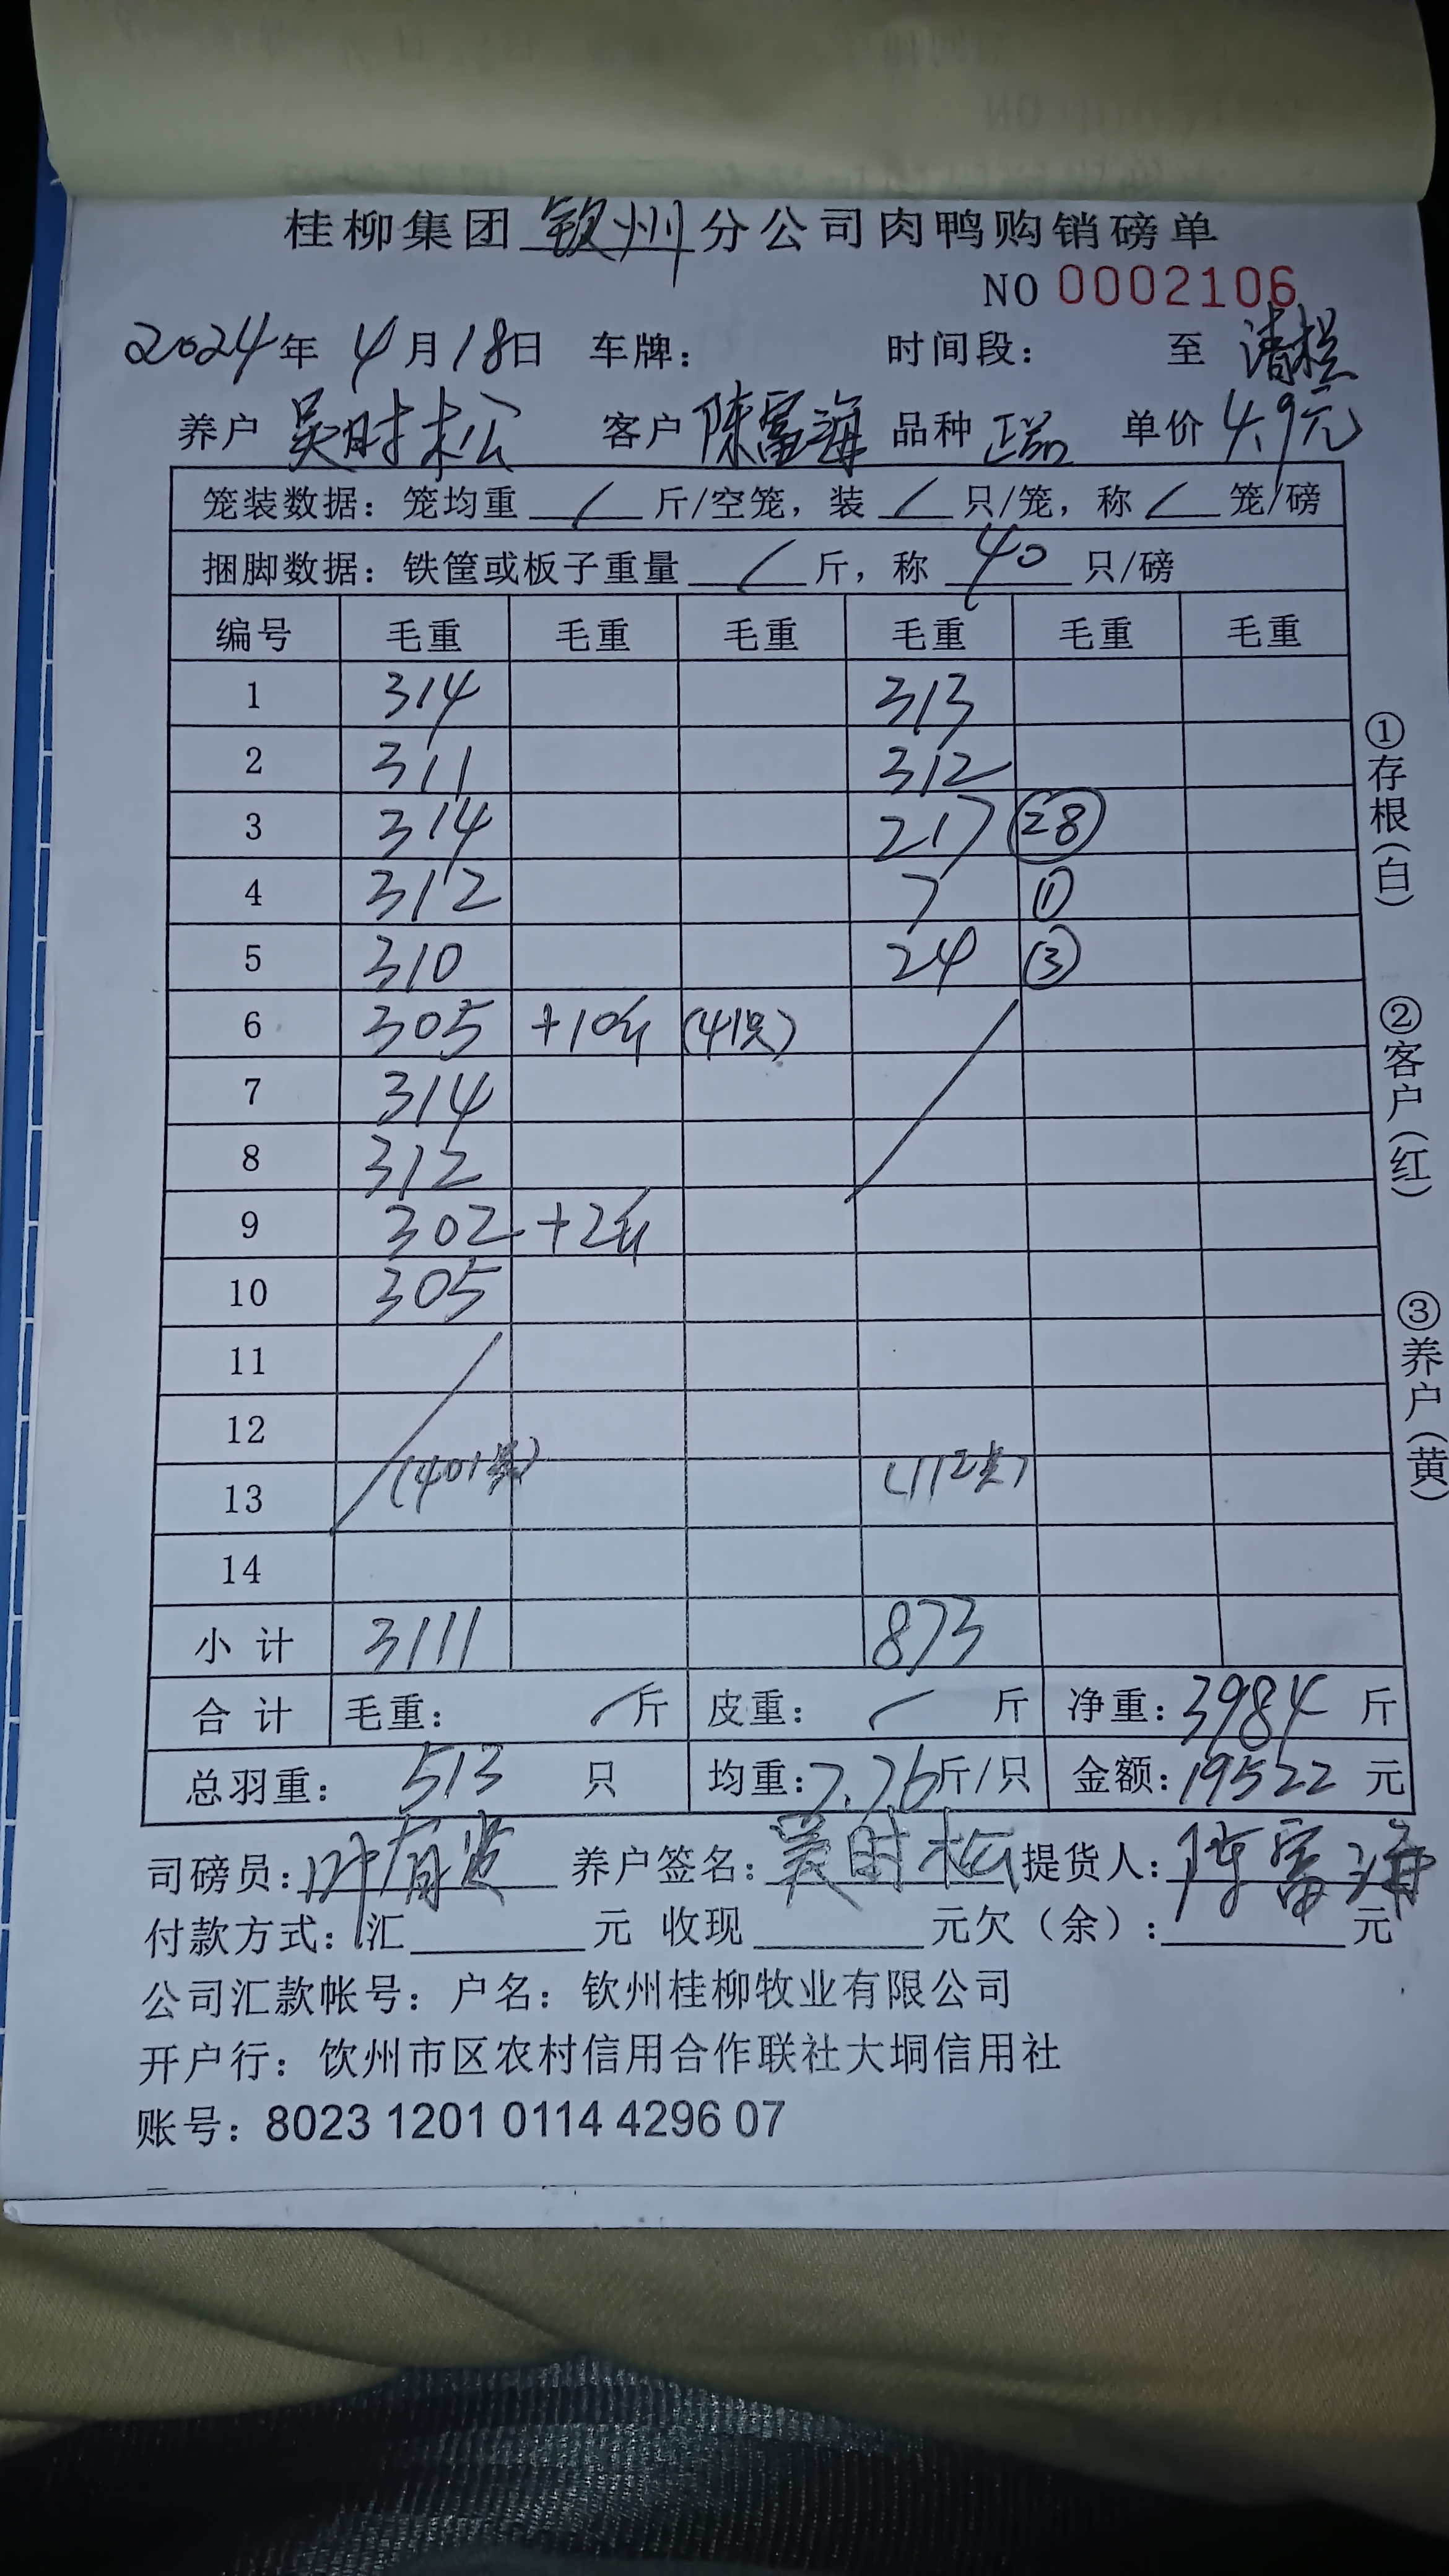 桂柳集团 钦州 分公司肉鸭购销磅单
NO 0002106
2024年 4月18日 车牌： 时间段： 至 清栏
养户 吴时松 客户 陈富海 品种 正品 单价 4.9元
笼装数据：笼均重 / 斤/空笼，装 / 只/笼，称 / 笼/磅
捆脚数据：铁筐或板子重量 / 斤，称 40 只/磅
编号 毛重 毛重 毛重 毛重 毛重 毛重
1 314 313
2 311 312
3 314 217 28
4 312 7 ①
5 310 24 ③
6 305 +10斤 (41只)
7 314
8 312
9 302 +2斤
10 305
11
12
13 (401只) (112只)
14
小计 3111 873
合计 毛重： / 斤 皮重： / 斤 净重：3984 斤
总羽重： 513 只 均重：7.76斤/只 金额：19522 元
司磅员：叶有贤 养户签名：吴时松 提货人：陈富海
付款方式：汇 元 收现 元欠（余）： 元
公司汇款帐号：户名：钦州桂柳牧业有限公司
开户行：钦州市区农村信用合作联社大垌信用社
账号：8023 1201 0114 4296 07
①存根（白）
②客户（红）
③养户（黄）